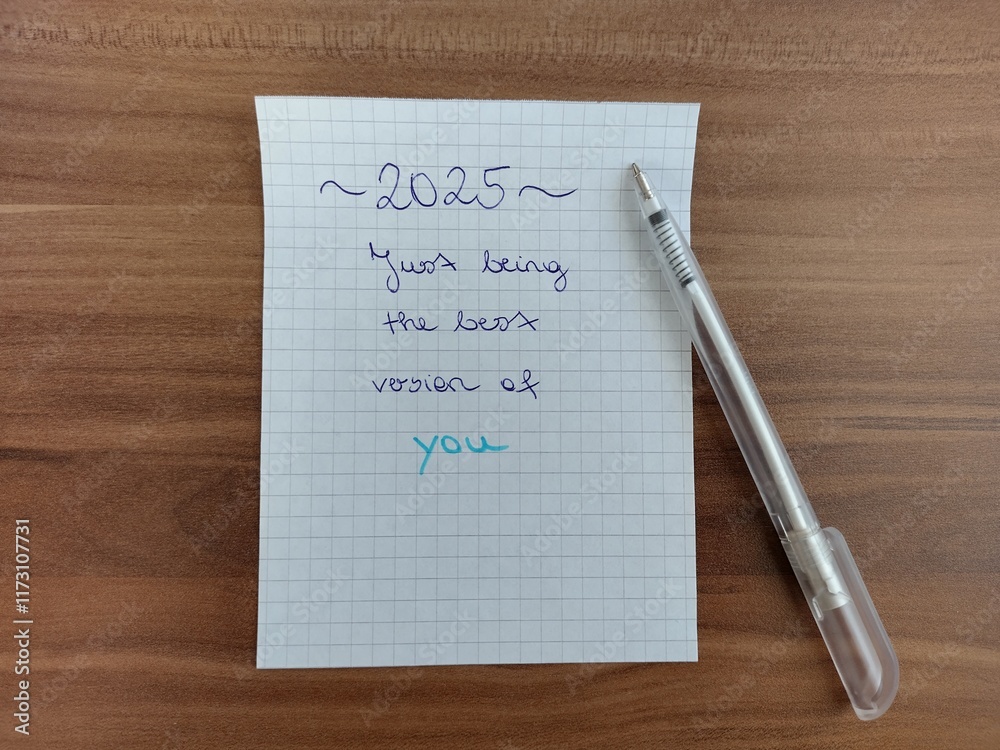 ~2025~
Just being
the best
version of
you
Adobe Stock | #1173107731